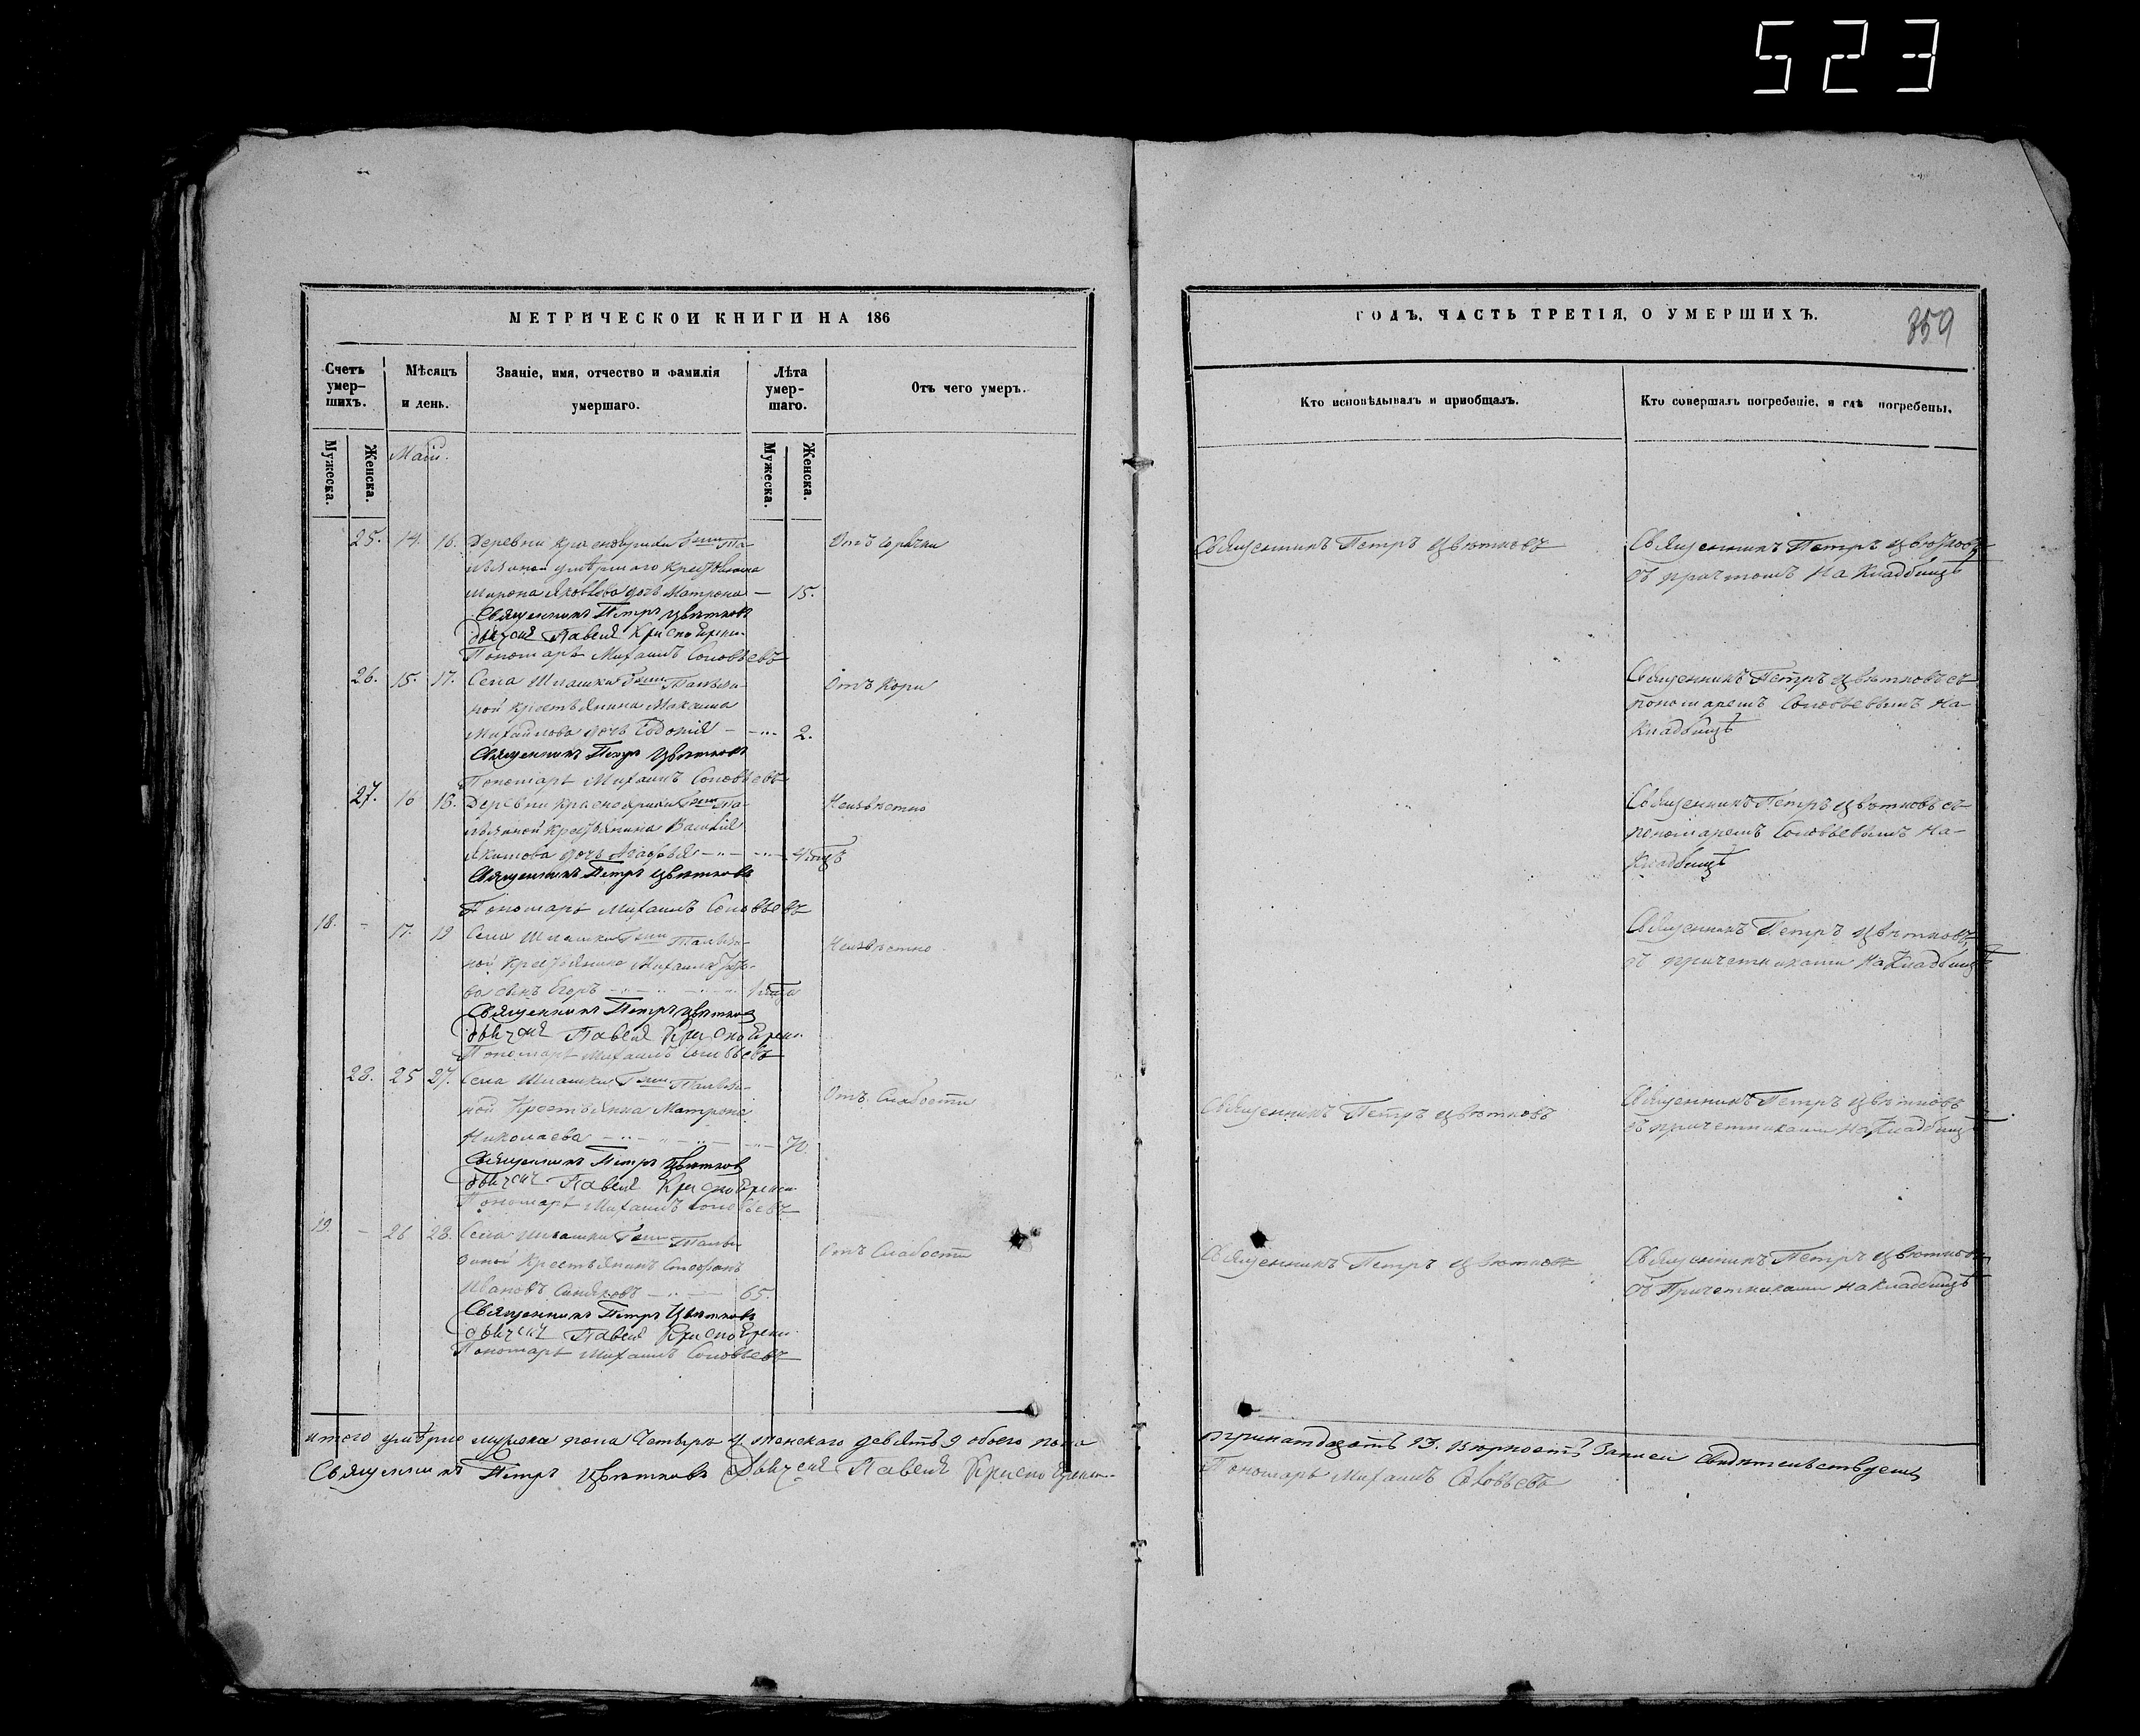 523
МЕТРИЧЕСКОЙ КНИГИ НА 186
Счетъ умер-шихъ.
Мѣсяцъ и день.
Званіе, имя, отчество и фамилія умершаго.
Лѣта умер-шаго.
Отъ чего умеръ.
Мужеска.
Женска.
Мужеска.
Женска.
Май.
25. 14. 16. Деревни Красноярки Отъ горячки
умершаго крестьянина
Мирона Яковлева дочь Матрона — 15.
Священникъ Петръ Цвѣтковъ
Павелъ
Пономарь Михаилъ Соловьевъ
26. 15. 17. Села Шлашки Отъ Кори
ной крестьянина Максима
Михайлова дочь Евдокія — 2.
Священникъ Петръ Цвѣтковъ
Пономарь Михаилъ Соловьевъ
27. 16 18. Деревни Красноярки Неизвѣстно
крестьянина Василія
Якимова дочь Агафья
Священникъ Петръ Цвѣтковъ
Пономарь Михаилъ Соловьевъ
18. - 17. 19 Села Шлашки Неизвѣстно
ной крестьянина Михаила
ва сынъ Егоръ
Священникъ Петръ Цвѣтковъ
Павелъ
Пономарь Михаилъ Соловьевъ
28. 25 27. Села Шлашки Отъ Слабости
ной Крестьянка Матрона
Николаева — 70.
Священникъ Петръ Цвѣтковъ
Павелъ
Пономарь Михаилъ Соловьевъ
19. - 26 28. Села Шлашки Отъ Слабости
Крестьянинъ Стефанъ
Ивановъ — 65.
Священникъ Петръ Цвѣтковъ
Павелъ
Пономарь Михаилъ Соловьевъ
итого умерло мужеска пола Четыре 4 женскаго девять 9 обоего пола
Священникъ Петръ Цвѣтковъ Павелъ
ГОДЪ, ЧАСТЬ ТРЕТІЯ, О УМЕРШИХЪ.
359
Кто исповѣдывалъ и пріобщалъ.
Кто совершалъ погребеніе, и гдѣ погребены.
Священникъ Петръ Цвѣтковъ
Священникъ Петръ Цвѣтковъ
съ причтомъ На Кладбищѣ
Священникъ Петръ Цвѣтковъ съ
пономаремъ Соловьевымъ На
Кладбищѣ
Священникъ Петръ Цвѣтковъ съ
пономаремъ Соловьевымъ На-
Кладбищѣ
Священникъ Петръ Цвѣтковъ
съ причетниками На Кладбищѣ
Священникъ Петръ Цвѣтковъ
Священникъ Петръ Цвѣтковъ
съ причетниками На Кладбищѣ
Священникъ Петръ Цвѣтковъ
Священникъ Петръ Цвѣтковъ
съ Причетниками на кладбищѣ
тринатдцать 13. вѣрность записи свидѣтельствуемъ
Пономарь Михаилъ Соловьевъ